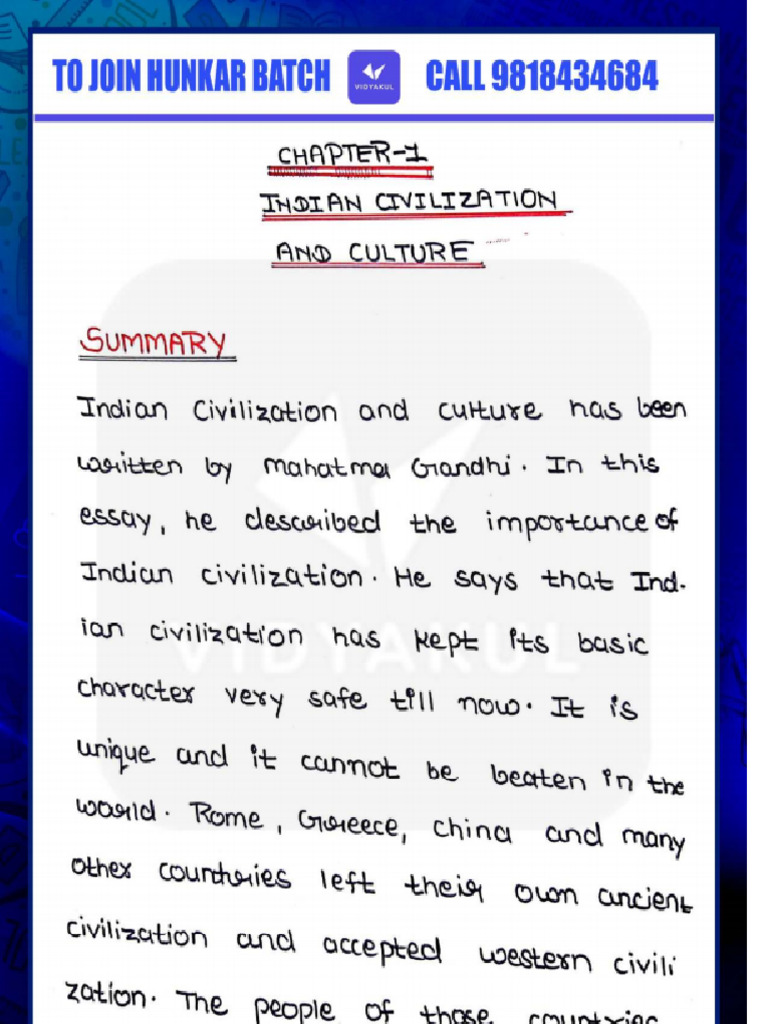 TO JOIN HUNKAR BATCH VIDYAKUL CALL 9818434684
CHAPTER-1
INDIAN CIVILIZATION
AND CULTURE
SUMMARY
Indian Civilization and culture has been
written by Mahatma Gandhi. In this
essay, he described the importance of
Indian civilization. He says that Ind-
ian civilization has kept its basic
character very safe till now. It is
unique and it cannot be beaten in the
world. Rome, Greece, China and many
other countries left their own ancient
civilization and accepted western civili
zation. The people of those countries
VIDYAKUL